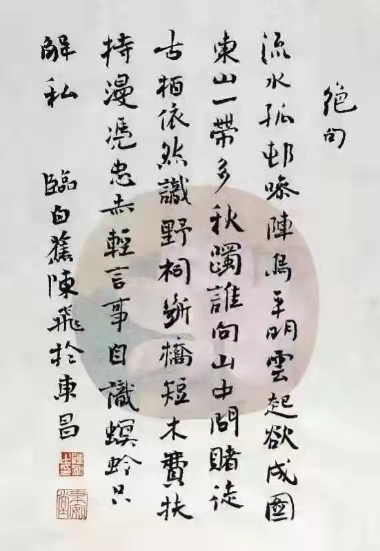 絕句
流水孤邨噪陣烏平明雲起欲成圖
東山一帶多秋躅誰向山中問賭徒
古栢依然識野祠斷橋短木費扶
持漫憑忠赤輕言事自識螟蛉只
解私 臨白蕉陳飛於東昌